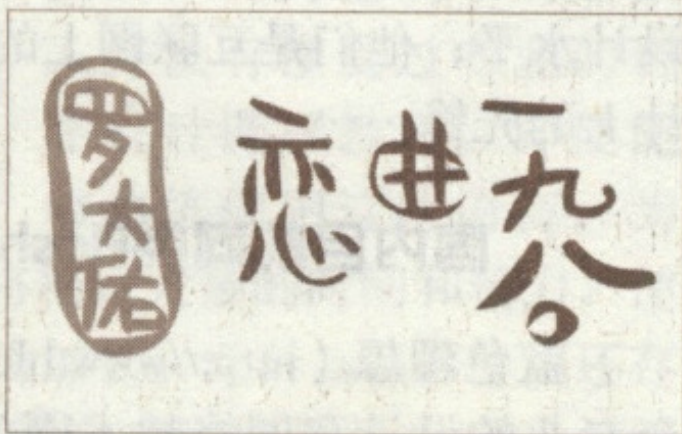 罗大佑
恋曲一九八〇